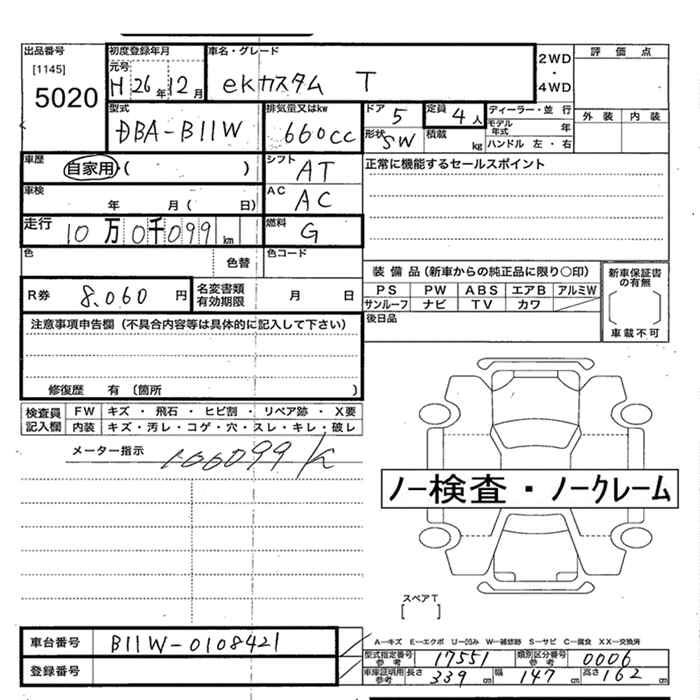 出品番号 初度登録年月 車名・グレード 評価点
[1145] 元号 2WD
5020 H 26年 12月 ekカスタム T ・
4WD
型式 排気量又はkw ドア 5 定員 4人 ディーラー・並行 外装 内装
DBA-B11W 660cc 形状 SW 積載 kg モデル年式 年
ハンドル 左・右
車歴 自家用・( ) シフト AT 正常に機能するセールスポイント
車検 年 月( 日) AC AC
走行 10万0千099km 燃料 G
色 色替 色コード
R券 8.060円 名変書類有効期限 月 日 装備品(新車からの純正品に限り〇印) 新車保証書の有無
PS PW ABS エアB アルミW
サンルーフ ナビ TV カワ [ ]
注意事項申告欄(不具合内容等は具体的に記入して下さい) 後日品 車載不可
修復歴 有 (箇所 )
検査員記入欄 FW キズ・飛石・ヒビ割・リペア跡・X要
内装 キズ・汚レ・コゲ・穴・スレ・キレ・破レ
メーター指示 100099K
ノー検査・ノークレーム
スペアT
[ ]
A-キズ E-エクボ U-凹み W-補修跡 S-サビ C-腐食 XX-交換済
車台番号 B11W-0108421 型式指定番号参考 17551 類別区分番号参考 0006
登録番号 車庫証明用参考 長さ 339cm 幅 147cm 高さ 162cm